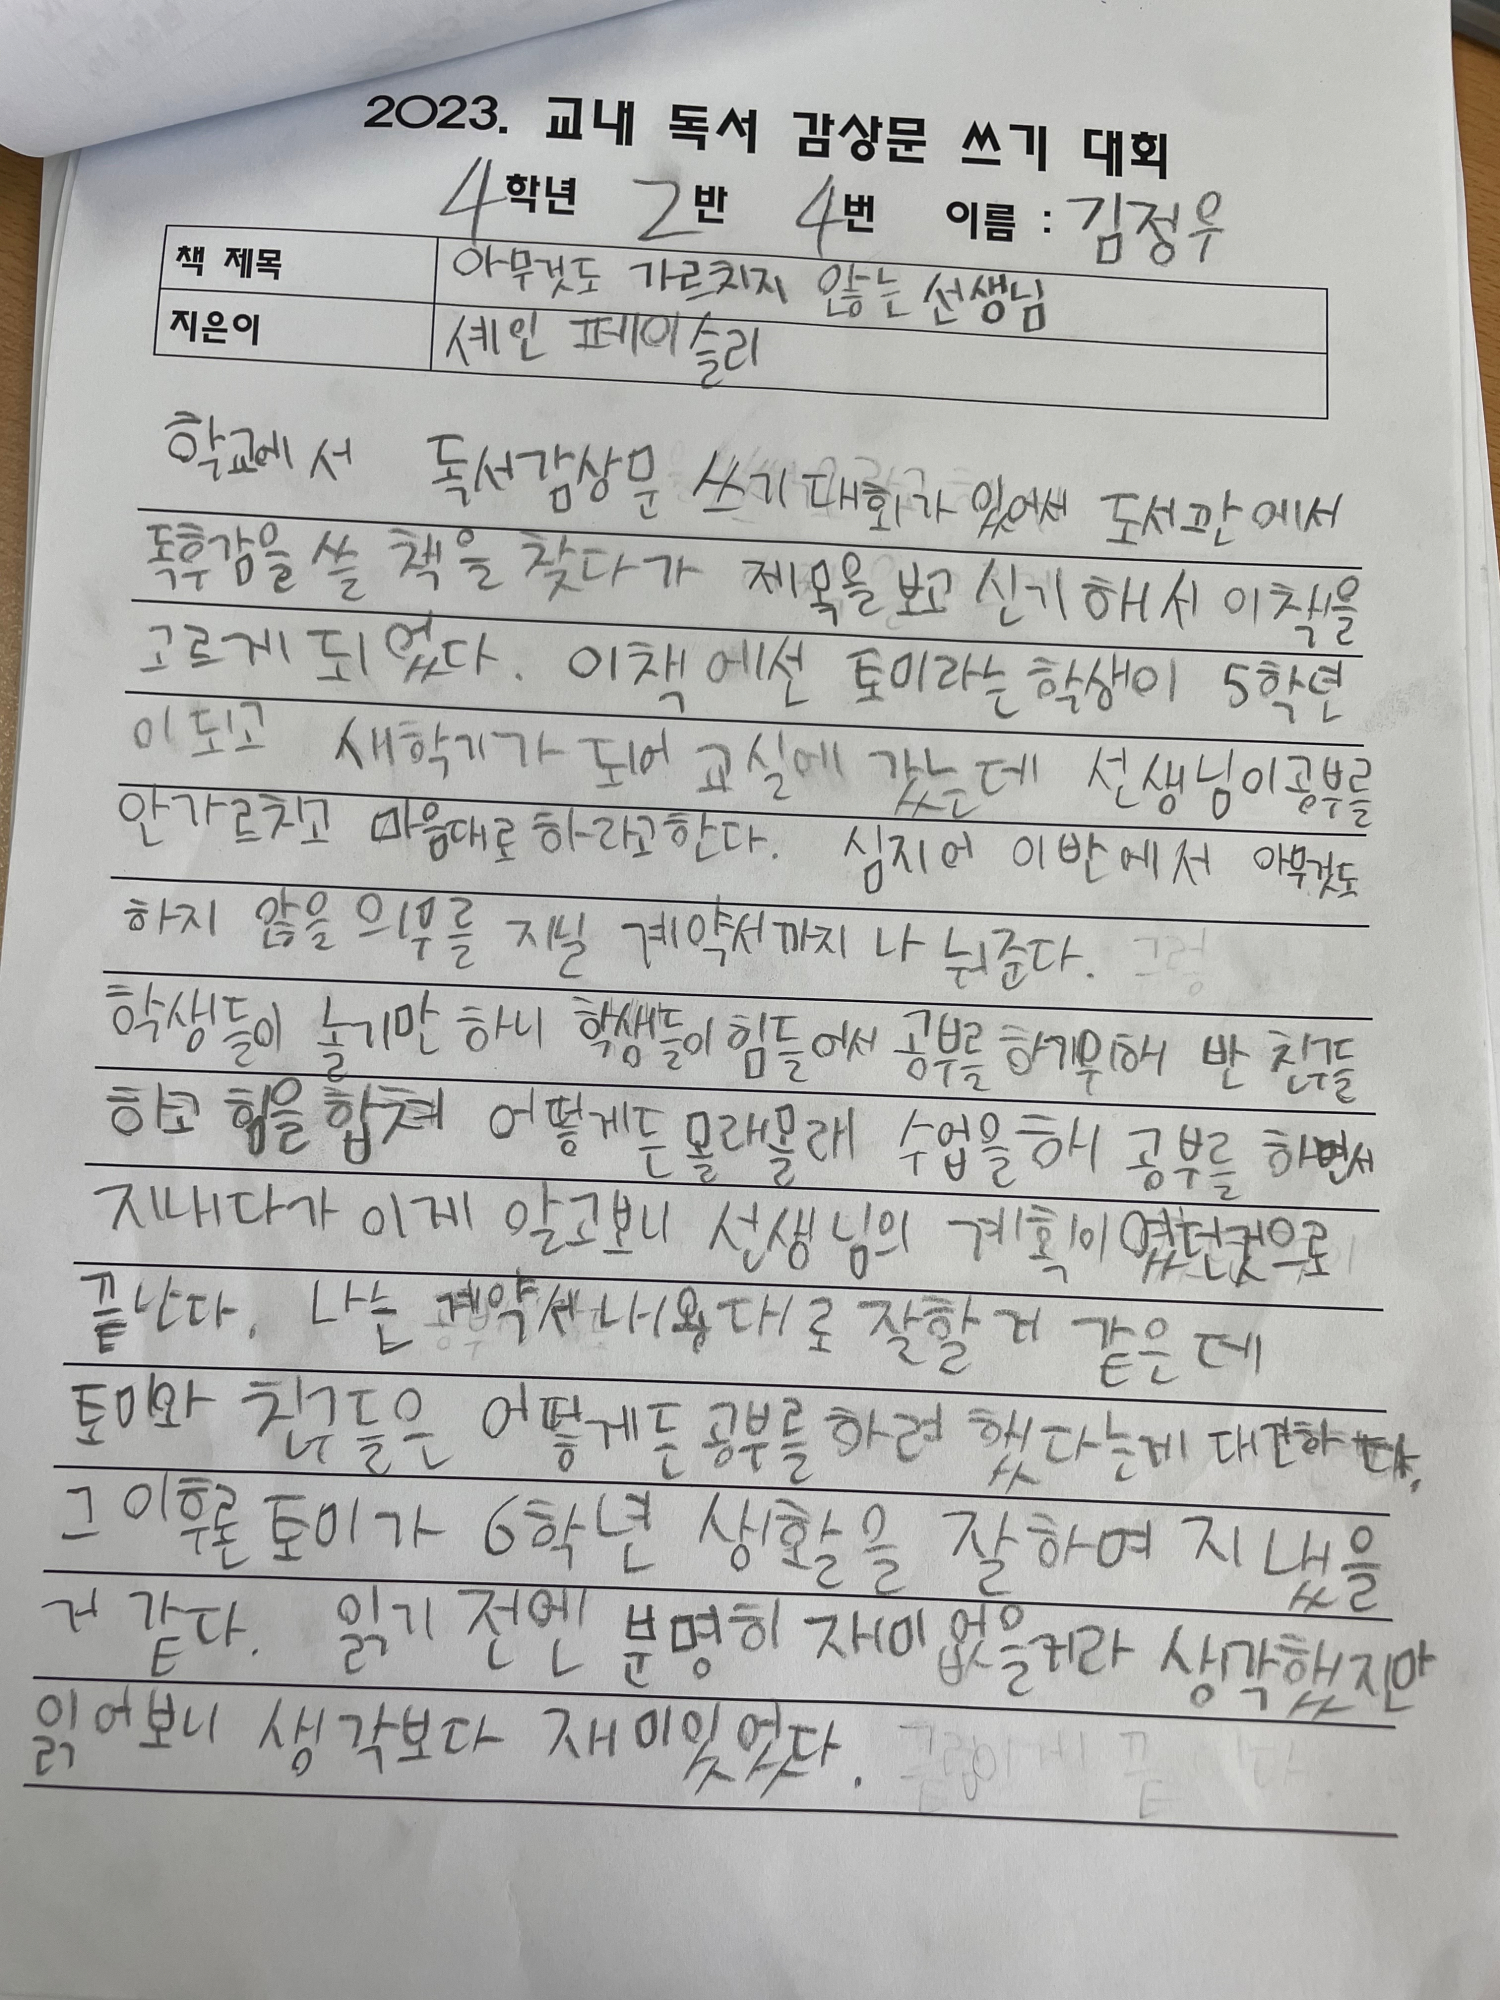 2023. 교내 독서 감상문 쓰기 대회
4학년 2반 4번 이름 : 김정우
책 제목 아무것도 가르치지 않는 선생님
지은이 셰인 페이슬리
학교에서 독서감상문 쓰기 대회가 있어서 도서관에서
독후감을 쓸 책을 찾다가 제목을 보고 신기해서 이책을
고르게 되었다. 이책에선 토미라는 학생이 5학년
이 되고 새학기가 되어 교실에 갔는데 선생님이 공부를
안가르치고 마음대로하라고한다. 심지어 이반에서 아무것도
하지 않을 의무를 지닐 계약서까지 나눠준다.
학생들이 놀기만 하니 학생들이 힘들어서 공부를 하기위해 반 친구들
하고 힘을 합쳐 어떻게든 몰래몰래 수업을 해 공부를 하면서
지내다가 이게 알고보니 선생님의 계획이였던것으로
끝난다. 나는 계약서 내용대로 잘할거 같은데
토미와 친구들은 어떻게든 공부를 하려 했다는게 대견하다.
그 이후론 토미가 6학년 생활을 잘하여 지냈을
거 같다. 읽기 전엔 분명히 재미없을거라 생각했지만
읽어보니 생각보다 재미있었다.